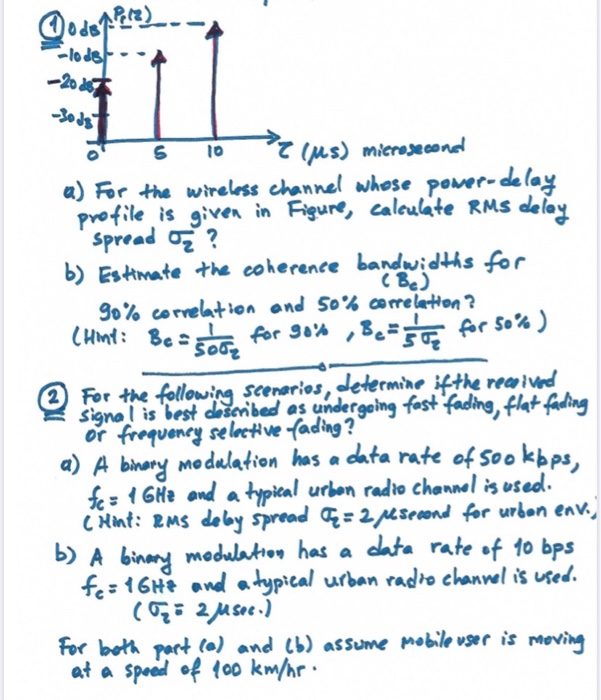 ① Pr(τ)
0 dB
-10 dB
-20 dB
-30 dB
0 5 10 τ (μs) microsecond
a) For the wireless channel whose power-delay
profile is given in Figure, calculate RMS delay
spread στ ?
b) Estimate the coherence bandwidths for
(Bc)
90% correlation and 50% correlation?
(Hint: Bc = 1/50στ for 90% , Bc = 1/5στ for 50%)
② For the following scenarios, determine if the received
signal is best described as undergoing fast fading, flat fading
or frequency selective fading?
a) A binary modulation has a data rate of 500 kbps,
fc = 1 GHz and a typical urban radio channel is used.
(Hint: RMS delay spread στ = 2 μsecond for urban env.)
b) A binary modulation has a data rate of 10 bps
fc = 1 GHz and a typical urban radio channel is used.
(στ = 2 μsec.)
For both part (a) and (b) assume mobile user is moving
at a speed of 100 km/hr.